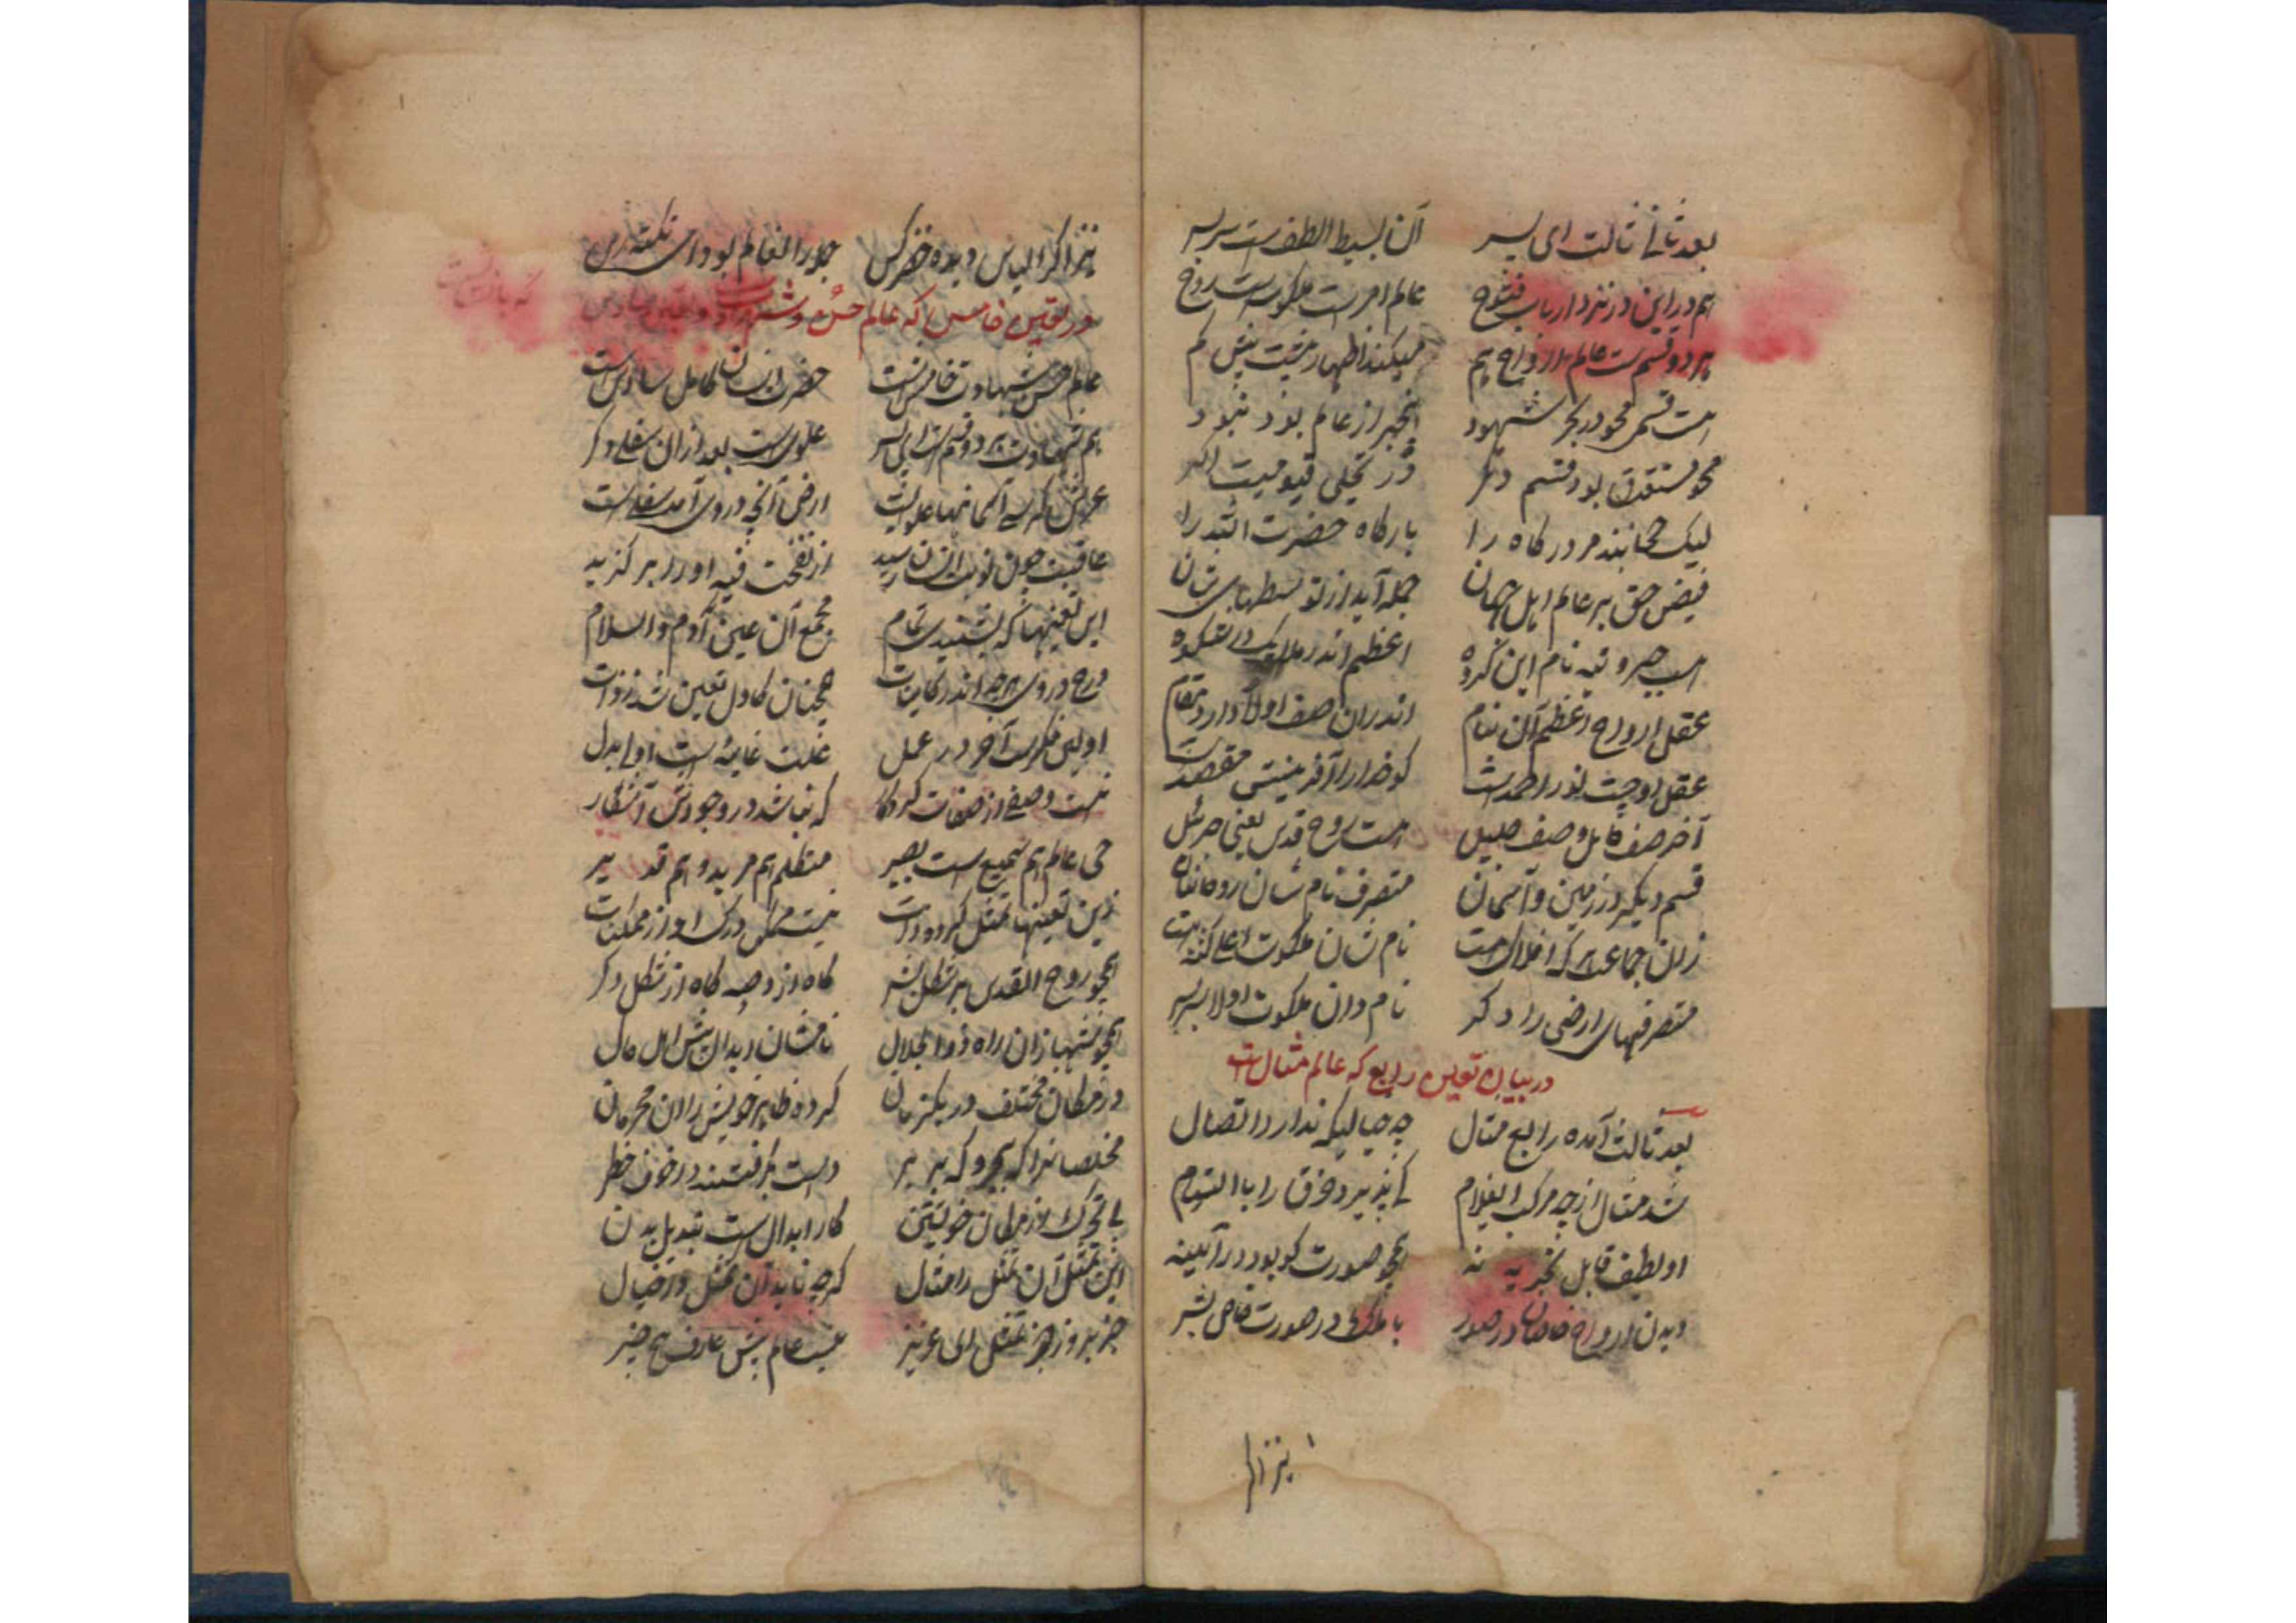 بعد ثانی ثالث ای پسر آن بسیط الطف است سربسر
هم در این در نزد ارباب فتوح عالم امرست ملکوتست روح
بر دو قسم ست عالم ارواح هم میکند اظهار پیش کم
هست قسمی محو در بحر شهود خبر از عالم بود نبود
محو مستغرق بود قسم دگر در تجلی قیومیت اکبر
لیک حجابند مر درگاه را بارگاه حضرت الله را
فیض حق بر عالم اهل جهان جمله آید از توسطهای شان
است جبروتیه نام این گروه اعظم اند در ملایک در شکوه
عقل ارواح اعظم آن بنام اندران صف اول دارد مقام
عقل او چیست نور احمدست کو خدا را آفرینش مقصدست
آخر صف کامل وصف جلیل هست روح قدس یعنی جبرئیل
قسم دیگر در زمین و آسمان متصرف نام شان روحانیان
زان جماعت هر که افلاک است نام شان ملکوت اعلی
متصرفهای ارضی را دگر نام دان ملکوت اولا سربسر
در بیان تعین رابع که عالم مثال است
بعد ثالث آمده رابع مثال چه خیالیکه ندارد اتصال
شد مثال از چه مرکب ای غلام کی پذیرد خرق را با التیام
او لطیف قابل تجزیه نه همچو صورت کو بود در آیینه
دیدن ارواح خاصان در صور با ملک در صورت خاص بشر
نیز اگر
نیز اگر الیاس دیده خضر کس جمله را العالم بود این نکته رس
در تعین خامس که عالم حس و شهادت و تعین سادس که
عالم حس شهادت خامس است حضرت انسان کامل سادس است
هم شهادت بر دو قسم است ای پسر علوی است بعد از آن سفلی دگر
عرش کرسی آسمانها علویست ارض آنچه در وی آمد سفلی است
عاقبت چون نوبت انسان رسید از نفخت فیه او را بر گزید
این تعینها که بشنیدی تمام مجمع آن عین آدم والسلام
درج در وی هر چه اندر کاینات همچنان کاول تعین شد ز ذات
اولین فکرت آخر در عمل علت غائیه است او بدل
نیست وصفی از صفات کردگار که نباشد در وجودش آشکار
حی عالم هم سمیع است بصیر متکلم هم مرید و هم قدیر
زین تعینها تمثل کرده ذات نیست ممکن درک او از ممکنات
همچو روح القدس بر شکل بشر گاه از وحیه گاه از شکل دگر
همچو منتهیان راه ذو الجلال نامشان ابدال پیش اهل حال
در مکان مختلف در یکزمان کرده ظاهر خویش را آن محرمان
مخلصانرا که بحر و که ببر دست بگرفتند در خوف خطر
بی تحرک از مکان خویشتن کار ابدال است تبدیل بدن
این تمثل آن تمثل را مثال گرچه ناید آن تمثل در خیال
جز بروز و جز تمثل ای عزیز نیست عالم پیش عارف هیچ چیز